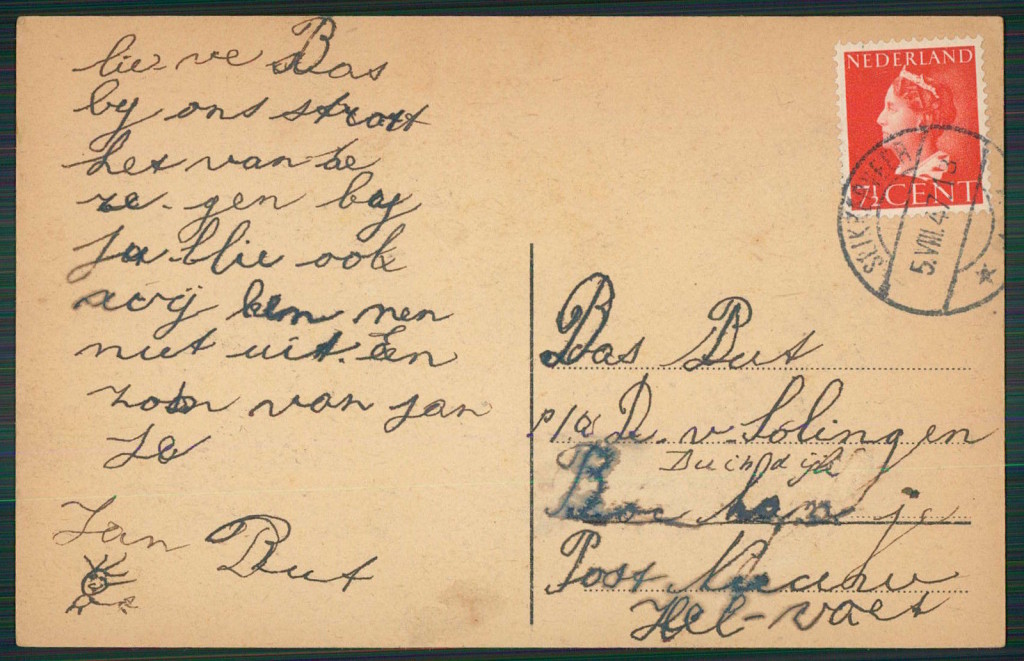 lie-ve Bas
by ons strott
het van de
re-gen by
ju llie ook
wij ken nen
niet uit. Een
zoen van jan
je
Jan But
NEDERLAND
7½ CENT
SLIKKERVEER
5.VIII.47
Bas But
p/a D. v. Solingen
Duichdijk
Post Nieuw
Hel-voet